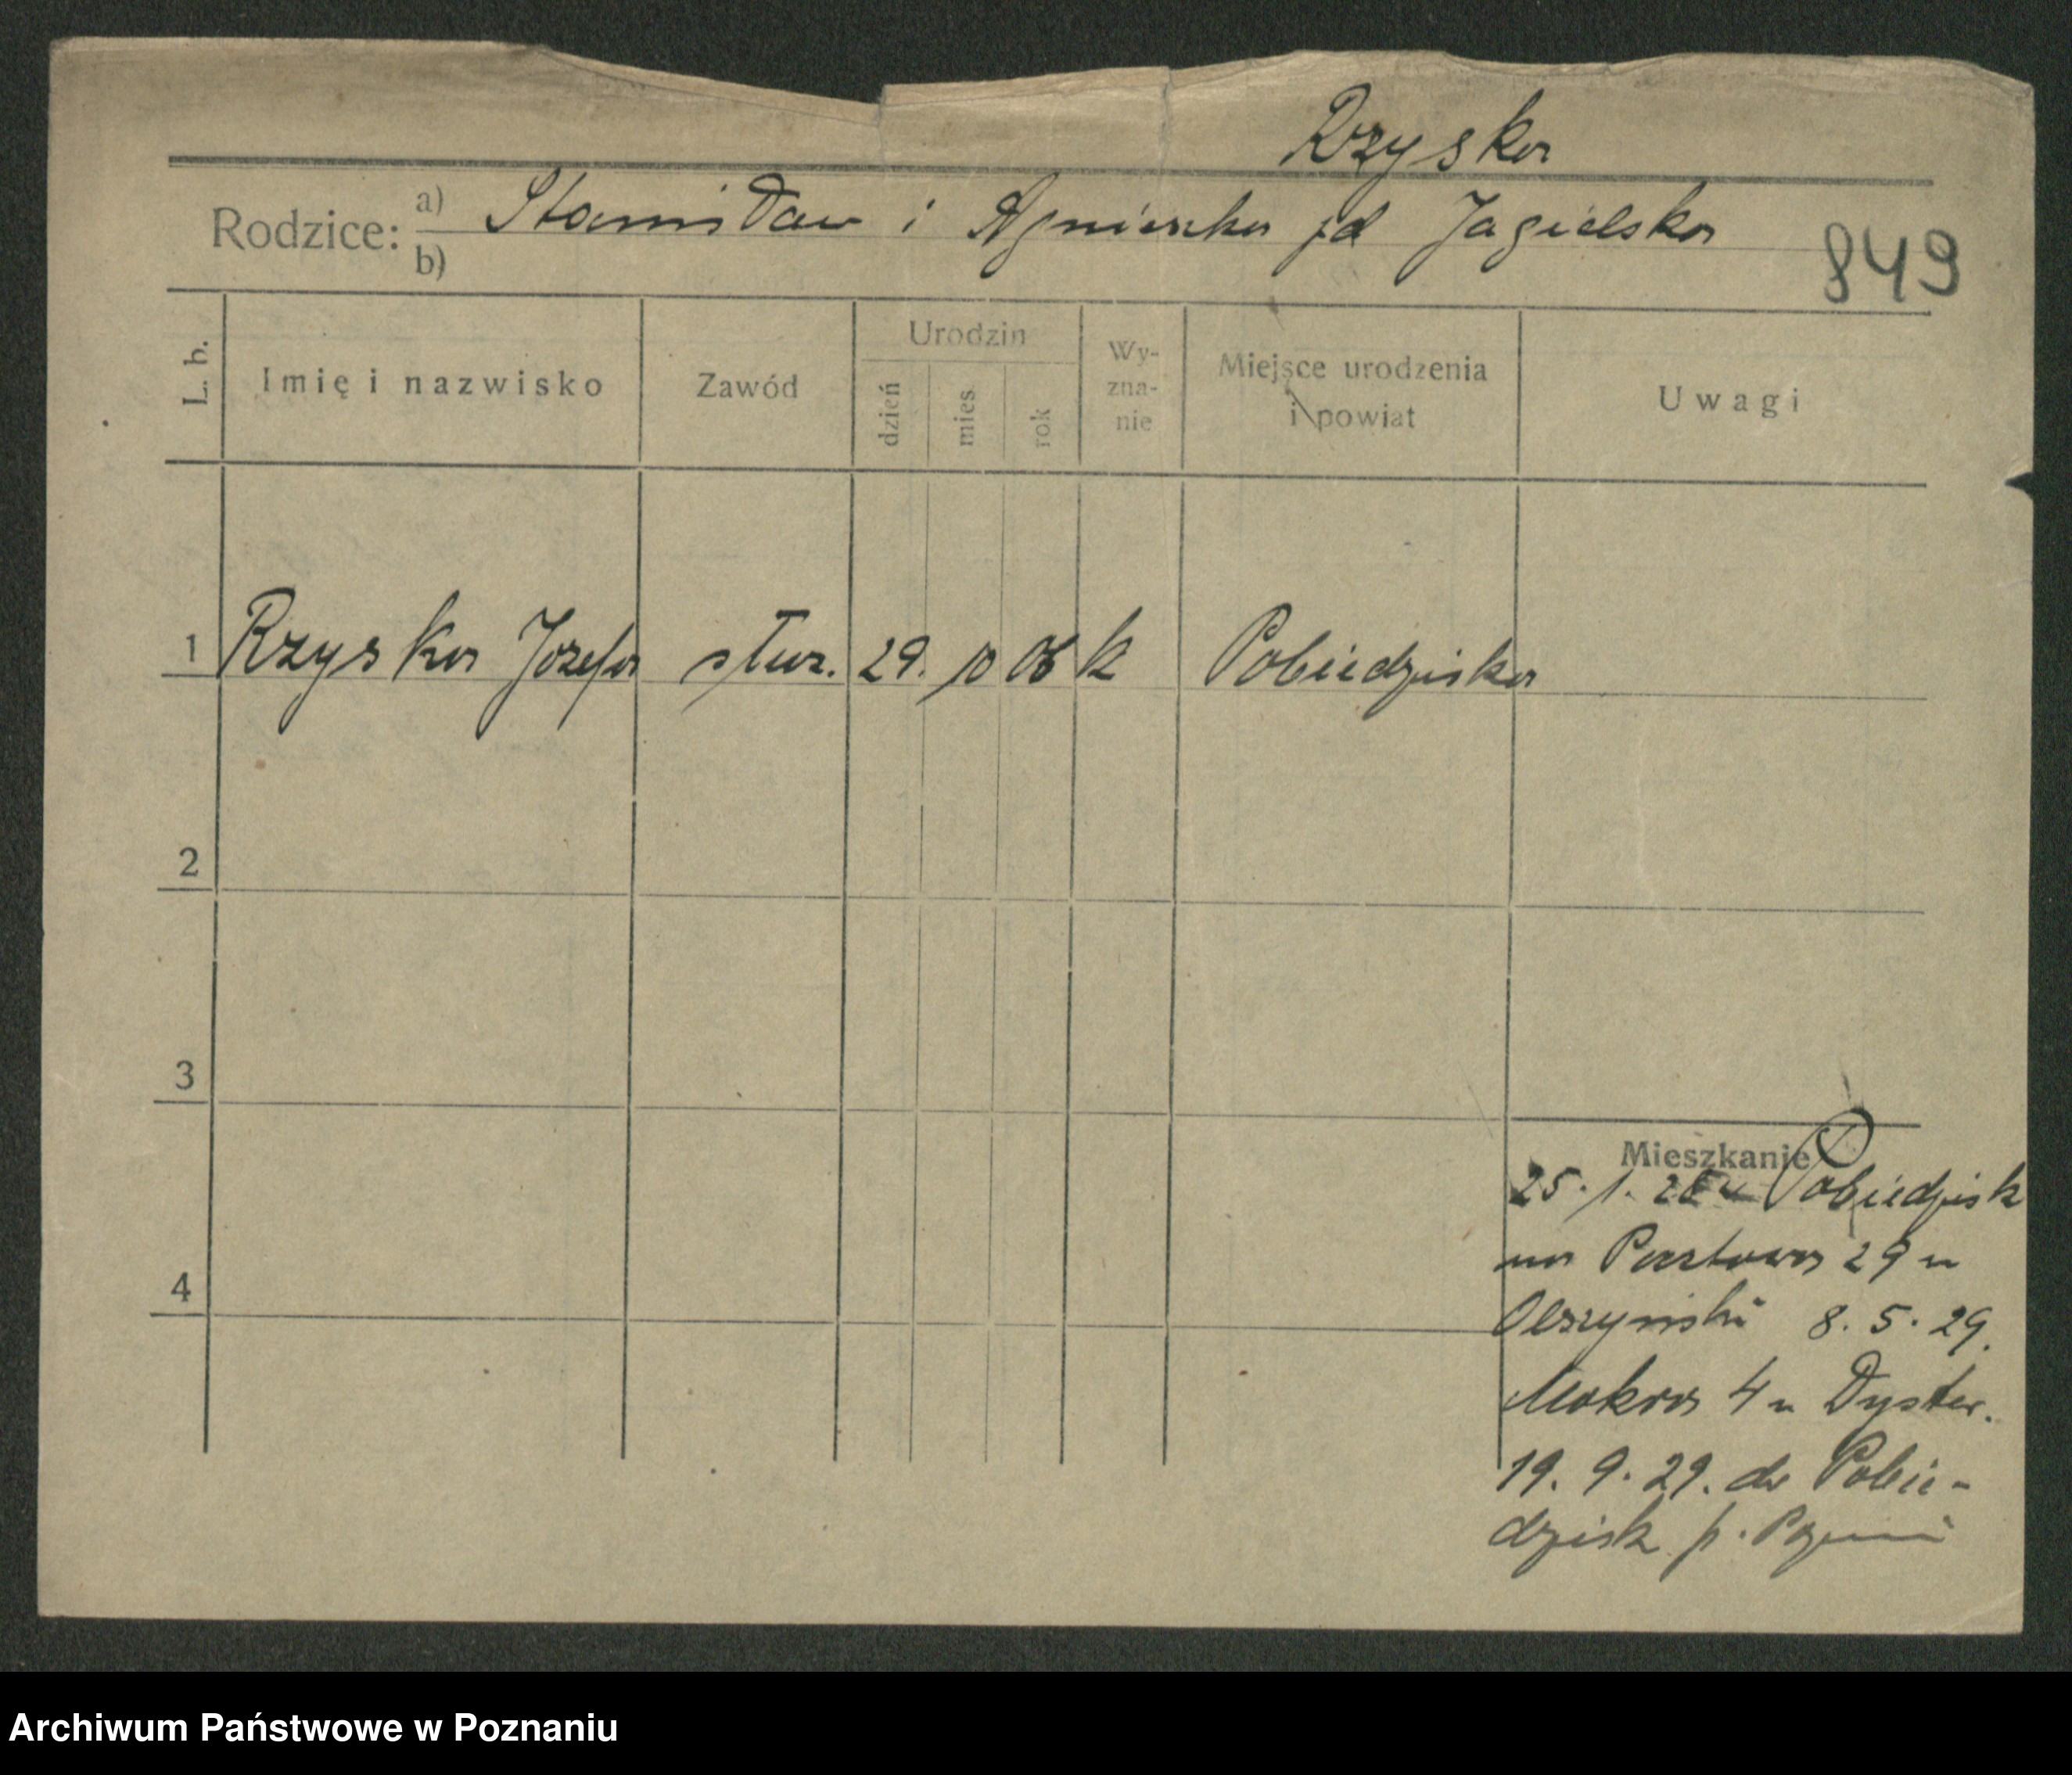 Rzyska
Rodzice: a) Stanisław i Agnieszka jd Jagielska
b)
849
L. b. Imię i nazwisko Zawód Urodzin dzień mies rok Wy-zna-nie Miejsce urodzenia i powiat Uwagi
1 Rzyska Józefa służ. 29. 10 06 k Pobiedziska
2
3
4
Mieszkanie
25. 1. z Pobiedzisk
na 29 u
Olszyński 8. 5. 29.
Mokra 4 u Dyster.
19. 9. 29. do Pobie-
dzisk p.
Archiwum Państwowe w Poznaniu